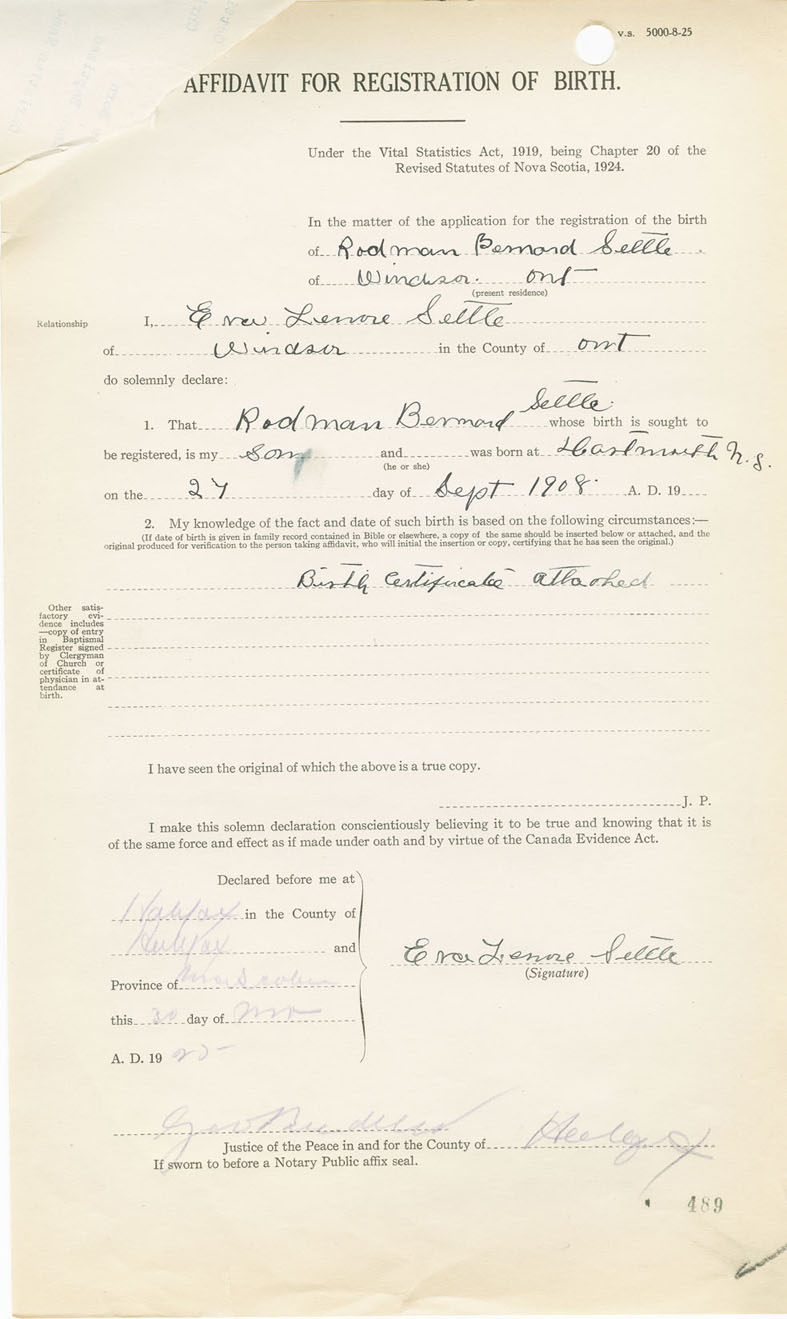 v.s. 5000-8-25
AFFIDAVIT FOR REGISTRATION OF BIRTH.
Under the Vital Statistics Act, 1919, being Chapter 20 of the
Revised Statutes of Nova Scotia, 1924.
In the matter of the application for the registration of the birth
of Rodman Bernard Settle
of Windsor. Ont
(present residence)
Relationship
I, Eva Lenore Settle
of Windsor in the County of ont
do solemnly declare:
Settle.
1. That Rodman Bernard whose birth is sought to
be registered, is my Son and was born at Dartmouth N.S.
(he or she)
on the 27 day of Sept 1908. A. D. 19
2. My knowledge of the fact and date of such birth is based on the following circumstances:—
(If date of birth is given in family record contained in Bible or elsewhere, a copy of the same should be inserted below or attached, and the
original produced for verification to the person taking affidavit, who will initial the insertion or copy, certifying that he has seen the original.)
Birth Certificate attached
Other satis-
factory evi-
dence includes
—copy of entry
in Baptismal
Register signed
by Clergyman
of Church or
certificate of
physician in at-
tendance at
birth.
I have seen the original of which the above is a true copy.
J. P.
I make this solemn declaration conscientiously believing it to be true and knowing that it is
of the same force and effect as if made under oath and by virtue of the Canada Evidence Act.
Declared before me at
Halifax in the County of
Halifax and
Province of Nova Scotia
Eva Lenore Settle
(Signature)
this 30 day of Nov
A. D. 19 25
Justice of the Peace in and for the County of Halifax
If sworn to before a Notary Public affix seal.
489